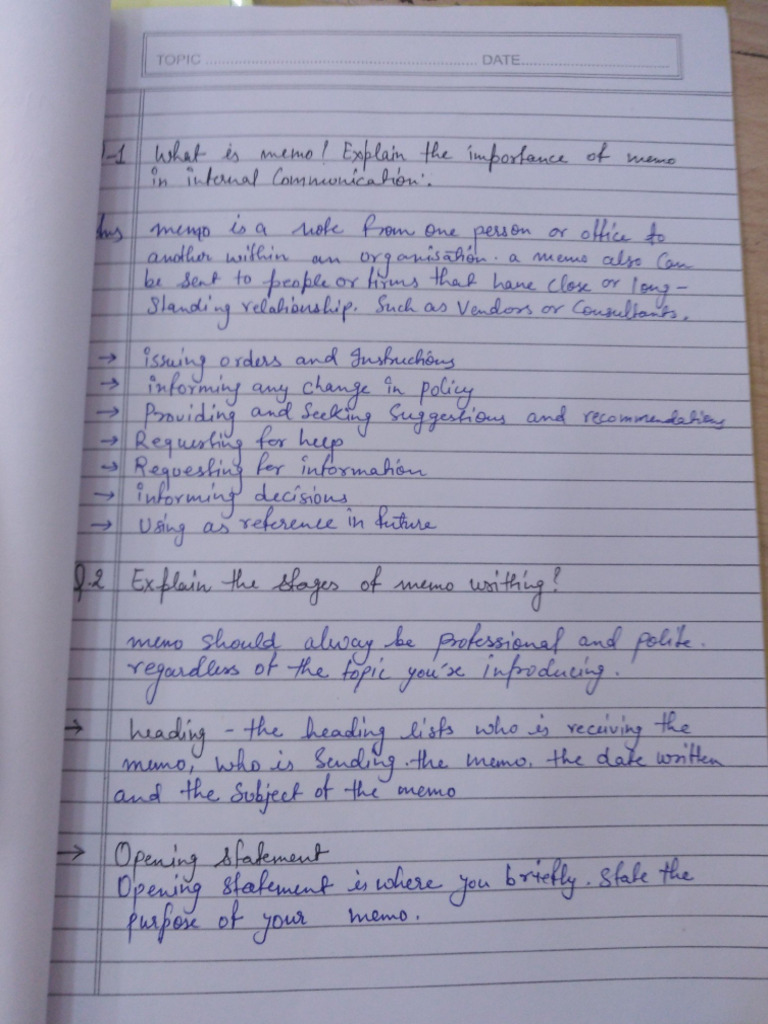 TOPIC ........................ DATE........................
Q-1 What is memo! Explain the importance of memo
in internal Communication.
Ans memo is a note from one person or office to
another within an organisation. a memo also Can
be sent to people or firms that have close or long-
Standing relationship. Such as Vendors or Consultants.
→ issuing orders and Instructions
→ informing any change in policy
→ Providing and Seeking Suggestions and recommendations
→ Requesting for help
→ Requesting for information
→ informing decisions
→ Using as reference in future
Q.2 Explain the stages of memo writhing?
memo should alway be professional and polite.
regardless of the topic you're introducing.
→ heading - the heading lists who is receiving the
memo, who is Sending. the memo. the date written
and the Subject of the memo
→ Opening Statement
Opening Statement is where you briefly. State the
purpose of your memo.